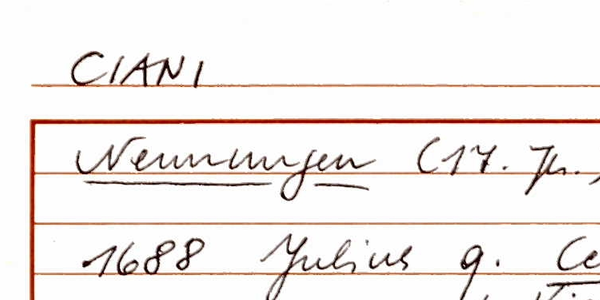 CIANI
Nennungen (17. Jh.,
1688 Julius g. Ce